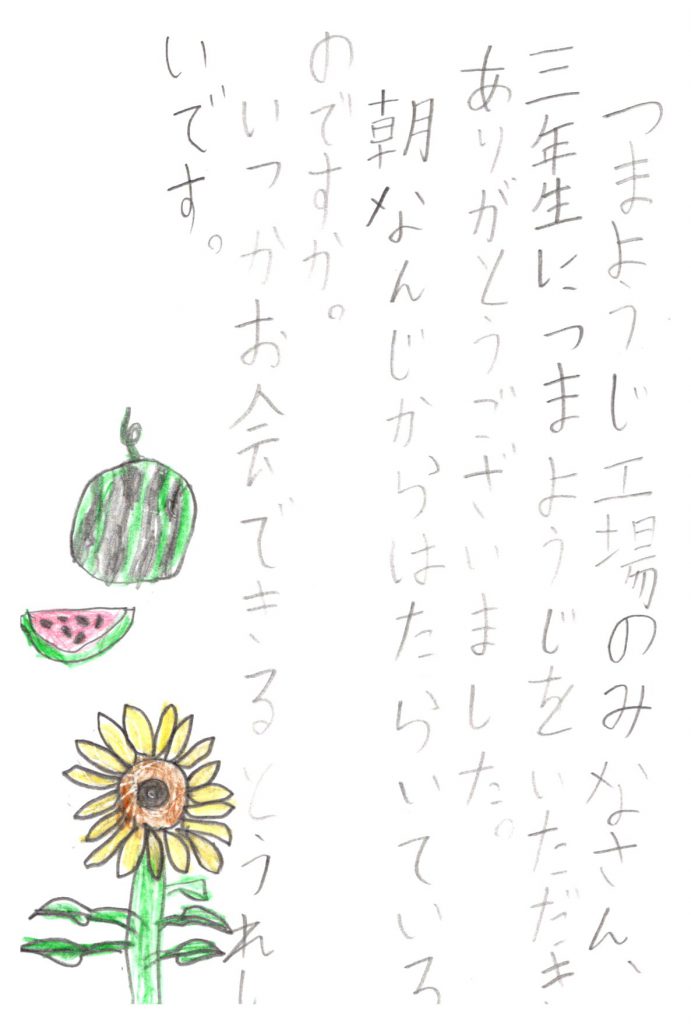 つまようじ工場のみなさん、
三年生につまようじをいただき
ありがとうございました。
朝なんじからはたらいている
のですか。
いつかお会できるとうれし
いです。